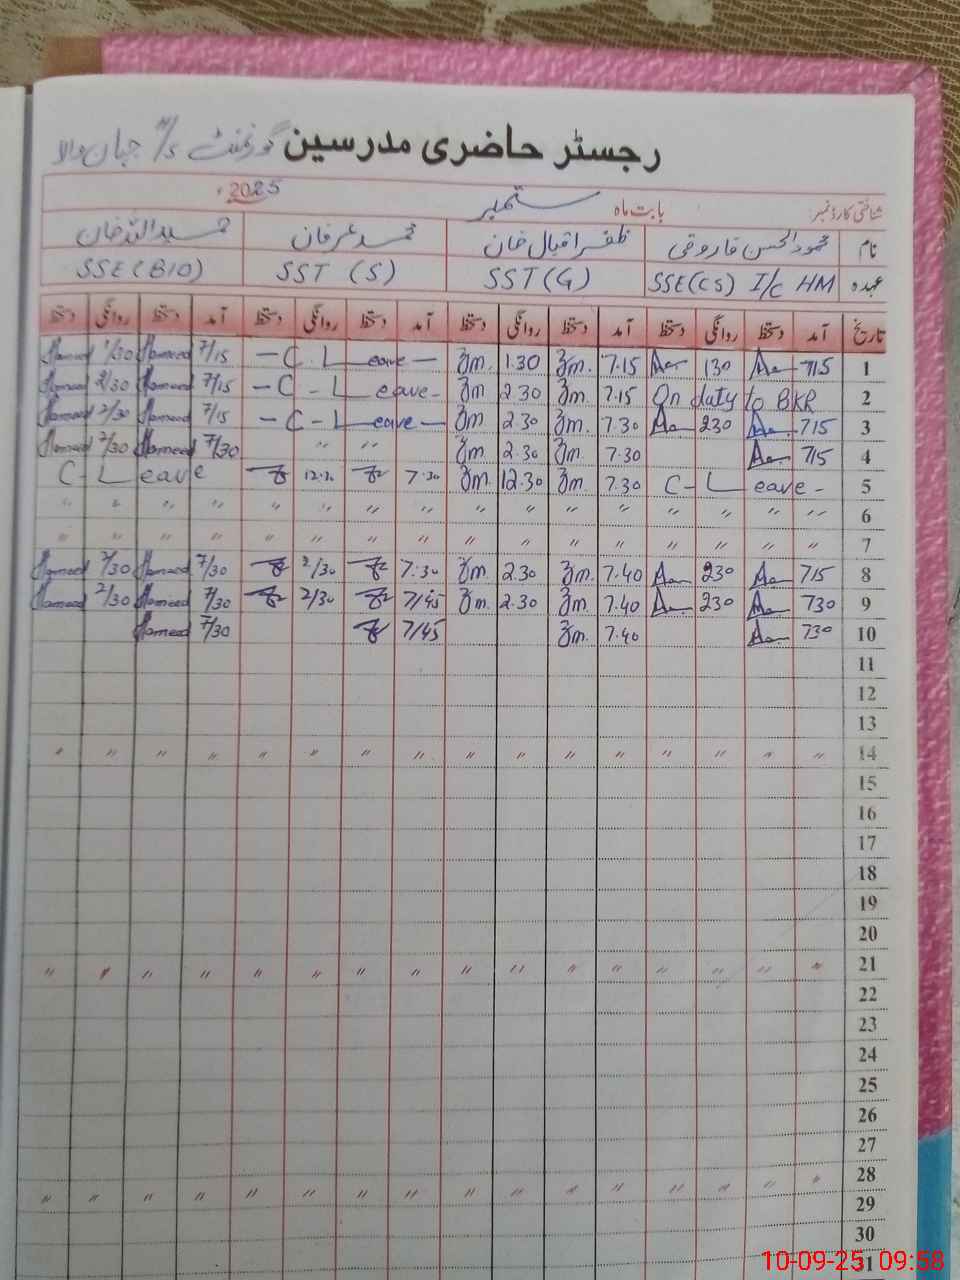 رجسٹر حاضری مدرسین گورنمنٹ H/S جہان والا
شناختی کارڈ نمبر بابت ماہ ستمبر 2025ء
نام محمود الحسن فاروقی ظفر اقبال خان محمد عرفان حمید اللہ خان
عہدہ SSE(CS) I/C HM SST(G) SST (S) SSE(BIO)
تاریخ آمد دستخط روانگی دستخط آمد دستخط روانگی دستخط آمد دستخط روانگی دستخط آمد دستخط روانگی دستخط
Hameed 1/30 Hameed 7/15 - C - Leave - Zm. 1.30 Zm. 7.15 130 715 1
Hameed 2/30 Hameed 7/15 - C - Leave - Zm 2.30 Zm. 7.15 On duty to BKR 2
Hameed 2/30 Hameed 7/15 - C - Leave - Zm 2.30 Zm. 7.30 230 715 3
Hameed 2/30 Hameed 7/30 " " Zm 2.30 Zm. 7.30 715 4
C - Leave 12.30 7.30 Zm. 12.30 Zm. 7.30 C - Leave - 5
" " " " " " " " " " " " " " " " 6
" " " " " " " " " " " " " " " " 7
Hameed 2/30 Hameed 7/30 2/30 7.30 Zm. 2.30 Zm. 7.40 230 715 8
Hameed 2/30 Hameed 7/30 2/30 7/45 Zm. 2.30 Zm. 7.40 230 730 9
Hameed 7/30 7/45 Zm. 7.40 730 10
11
12
13
" " " " " " " " " " " " " " " " 14
15
16
17
18
19
20
" " " " " " " " " " " " " " " " 21
22
23
24
25
26
27
" " " " " " " " " " " " " " " " 28
29
30
31
10-09-25 09:58